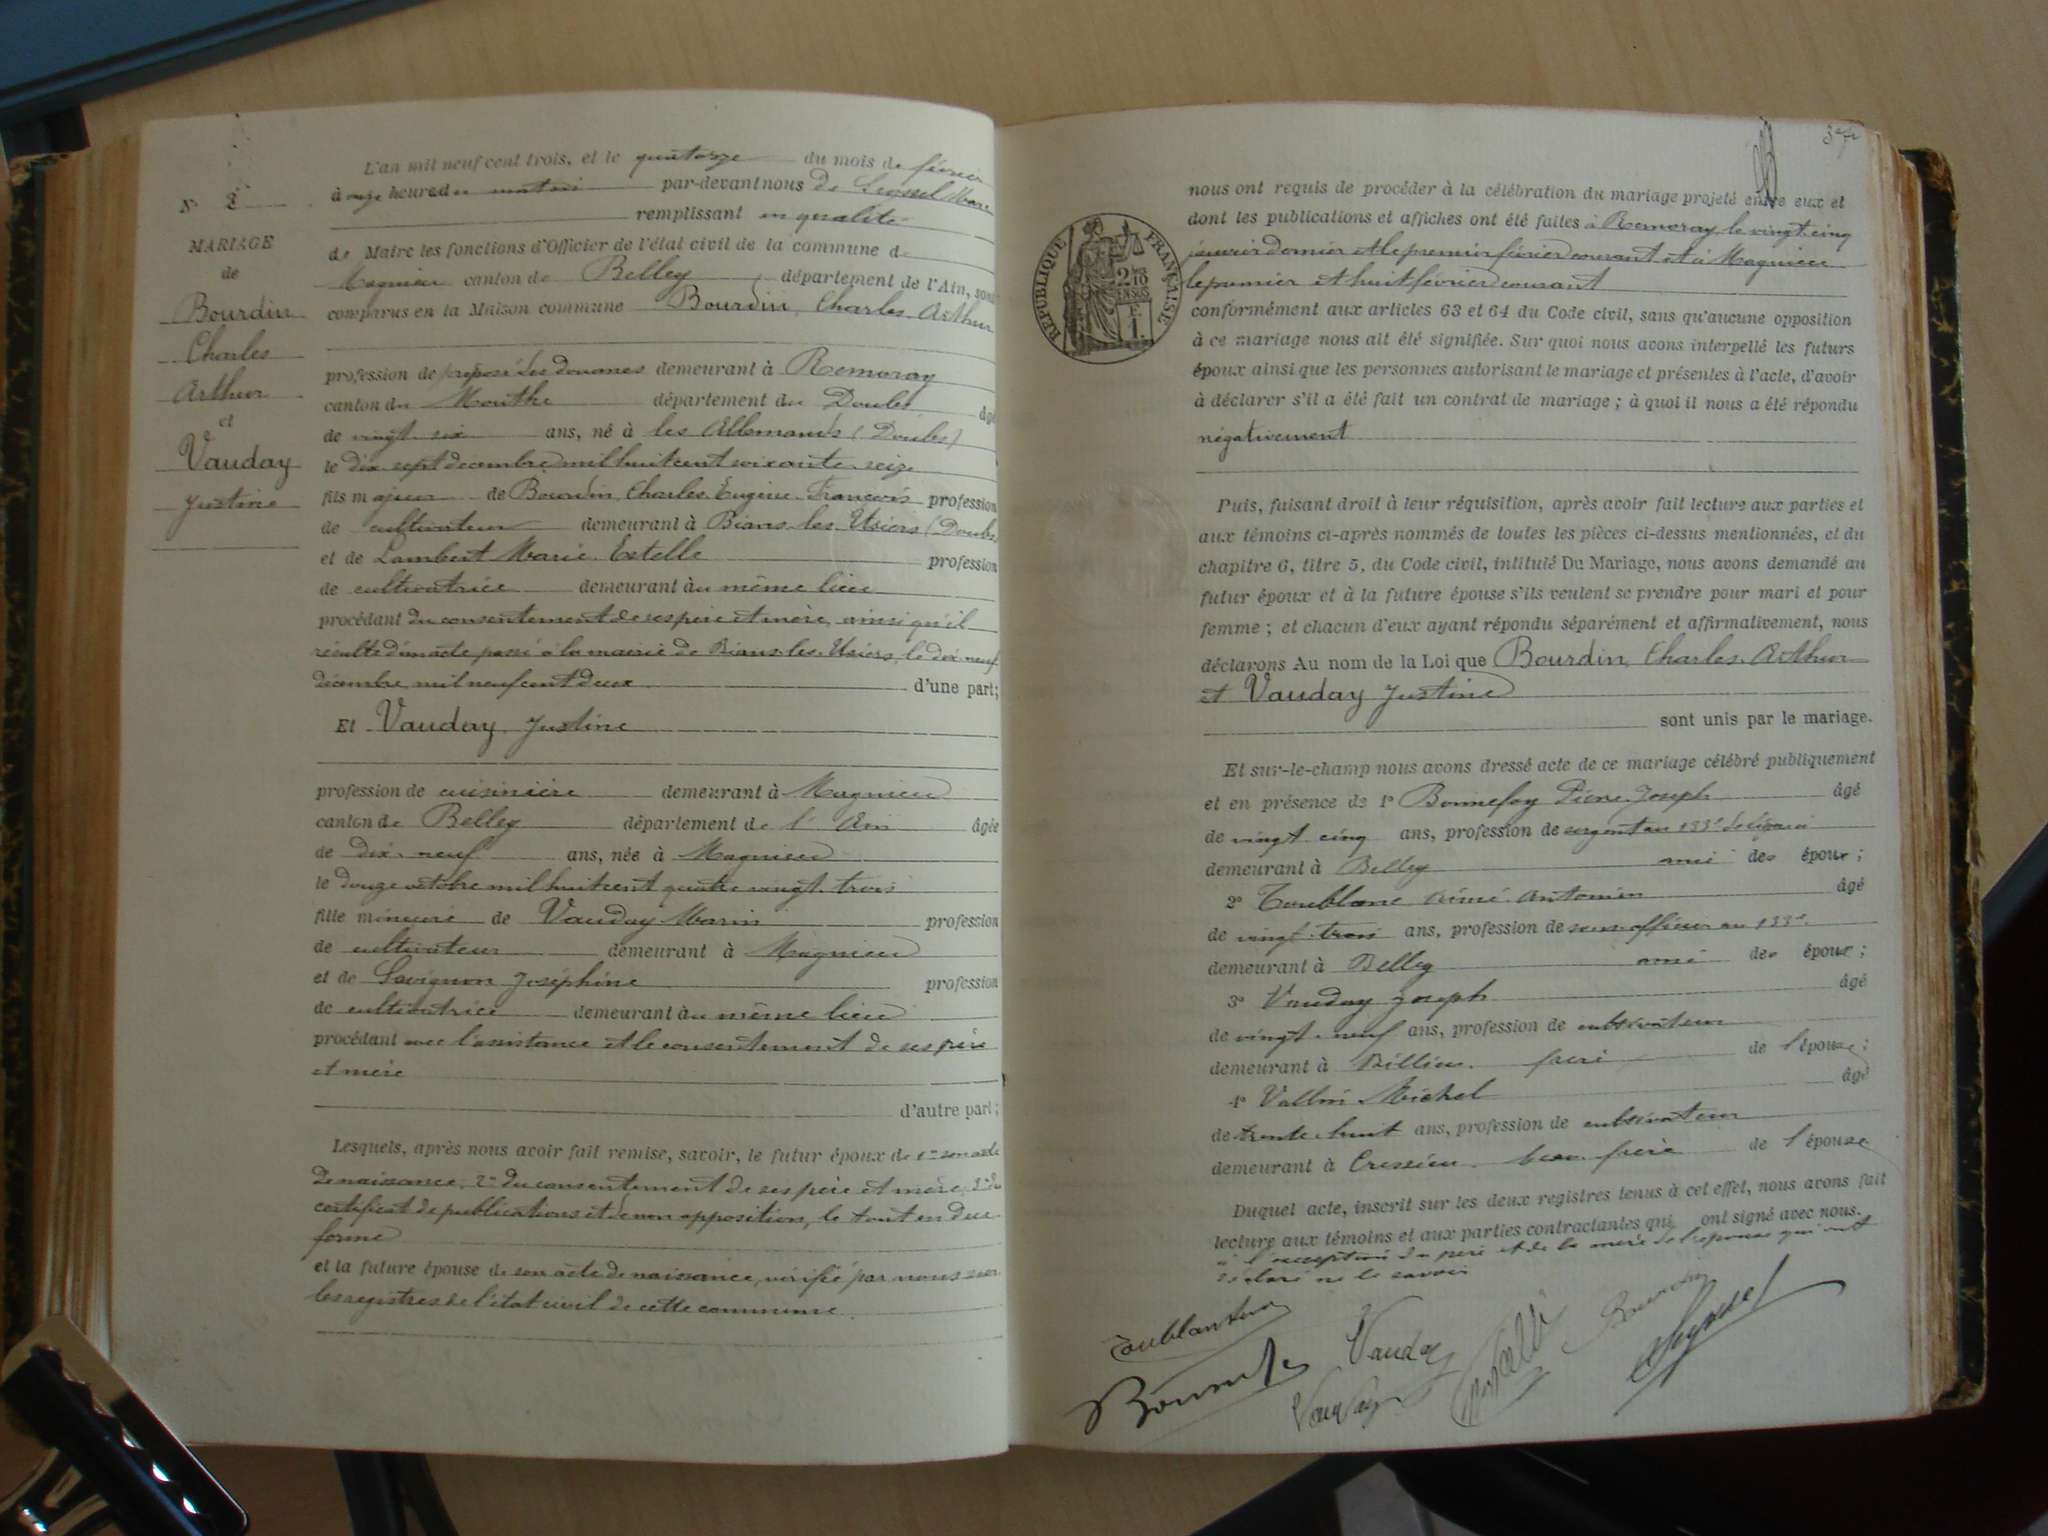 L'an mil neuf cent trois, et le quatorze du mois de février
à onze heures du matin par-devant nous de Seyssel Marc
N° 2
remplissant en qualité
MARIAGE
de
Bourdin
Charles
Arthur
et
Vauday
Justine
de Maire les fonctions d'Officier de l'état civil de la commune de
Magnieu canton de Belley département de l'Ain, sont
comparus en la Maison commune Bourdin, Charles Arthur
profession de préposé des douanes demeurant à Remoray
canton du Mouthe département du Doubs âgé
de vingt six ans, né à les Allemands (Doubs)
le dix sept décembre mil huit cent soixante seize
fils majeur de Bourdin, Charles Eugène François profession
de cultivateur demeurant à Bians-les-Usiers (Doubs
et de Lambert Marie Estelle profession
de cultivatrice demeurant au même lieu
procédant du consentement de ses père et mère, ainsi qu'il
résulte d'un acte passé à la mairie de Bians-les-Usiers, le dix neuf
décembre mil neuf cent deux d'une part;
Et Vauday Justine
profession de cuisinière demeurant à Magnieu
canton de Belley département de l'Ain âgée
de dix neuf ans, née à Magnieu
le douze octobre mil huit cent quatre vingt trois
fille mineure de Vauday Marin profession
de cultivateur demeurant à Magnieu
et de Savignon Joséphine profession
de cultivatrice demeurant au même lieu
procédant avec l'assistance et le consentement de ses père
et mère
d'autre part;
Lesquels, après nous avoir fait remise, savoir, le futur époux de 1° son acte
de naissance, 2° du consentement de ses père et mère, 3° du
certificat de publications et de non opposition, le tout en due
forme
et la future épouse de son acte de naissance, vérifié par nous sur
les registres de l'état civil de cette commune.
nous ont requis de procéder à la célébration du mariage projeté entre eux et
dont les publications et affiches ont été faites à Remoray le vingt cinq
janvier dernier et le premier février courant et à Magnieu
le premier et huit février courant
RÉPUBLIQUE FRANÇAISE
2/10 EN SUS
1 F.
conformément aux articles 63 et 64 du Code civil, sans qu'aucune opposition
à ce mariage nous ait été signifiée. Sur quoi nous avons interpellé les futurs
époux ainsi que les personnes autorisant le mariage et présentes à l'acte, d'avoir
à déclarer s'il a été fait un contrat de mariage; à quoi il nous a été répondu
négativement
Puis, faisant droit à leur réquisition, après avoir fait lecture aux parties et
aux témoins ci-après nommés de toutes les pièces ci-dessus mentionnées, et du
chapitre 6, titre 5, du Code civil, intitulé Du Mariage, nous avons demandé au
futur époux et à la future épouse s'ils veulent se prendre pour mari et pour
femme; et chacun d'eux ayant répondu séparément et affirmativement, nous
déclarons Au nom de la Loi que Bourdin, Charles Arthur
et Vauday Justine
sont unis par le mariage.
Et sur-le-champ nous avons dressé acte de ce mariage célébré publiquement
et en présence de 1° Bonnefoy Pierre Joseph âgé
de vingt cinq ans, profession de sergent au 133e de ligne
demeurant à Belley ami des époux;
2° Toublanc Aimé Antonin âgé
de vingt trois ans, profession de sous-officier au 133e
demeurant à Belley ami des époux;
3° Vauday Joseph âgé
de vingt neuf ans, profession de cultivateur
demeurant à Billieu frère de l'épouse;
4° Vallin Michel âgé
de trente huit ans, profession de cultivateur
demeurant à Cressieu beau frère de l'épouse
Duquel acte, inscrit sur les deux registres tenus à cet effet, nous avons fait
lecture aux témoins et aux parties contractantes qui ont signé avec nous.
à l'exception du père et de la mère de l'épouse qui ont
déclaré ne le savoir
Vauday
Bourdin
Seyssel
Vauday